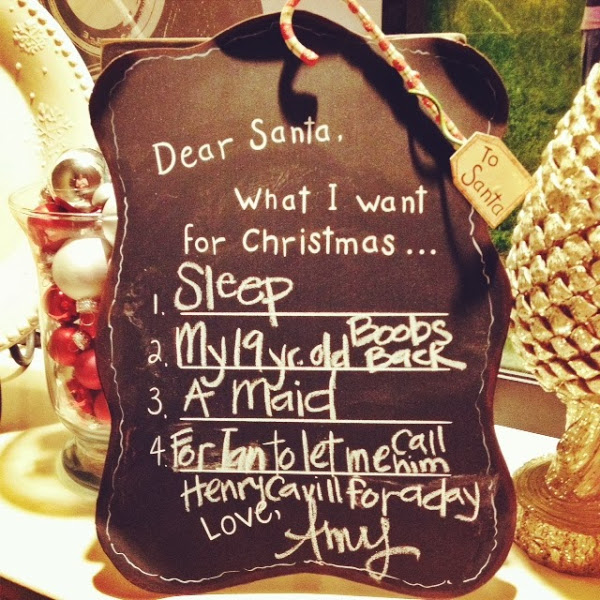 Dear Santa,
What I want
for Christmas...
1. Sleep
2. My 19 yr. old Boobs Back
3. A Maid
4. For Ian to let me call him
Henry Cavill for a day
Love,
Amy
To Santa